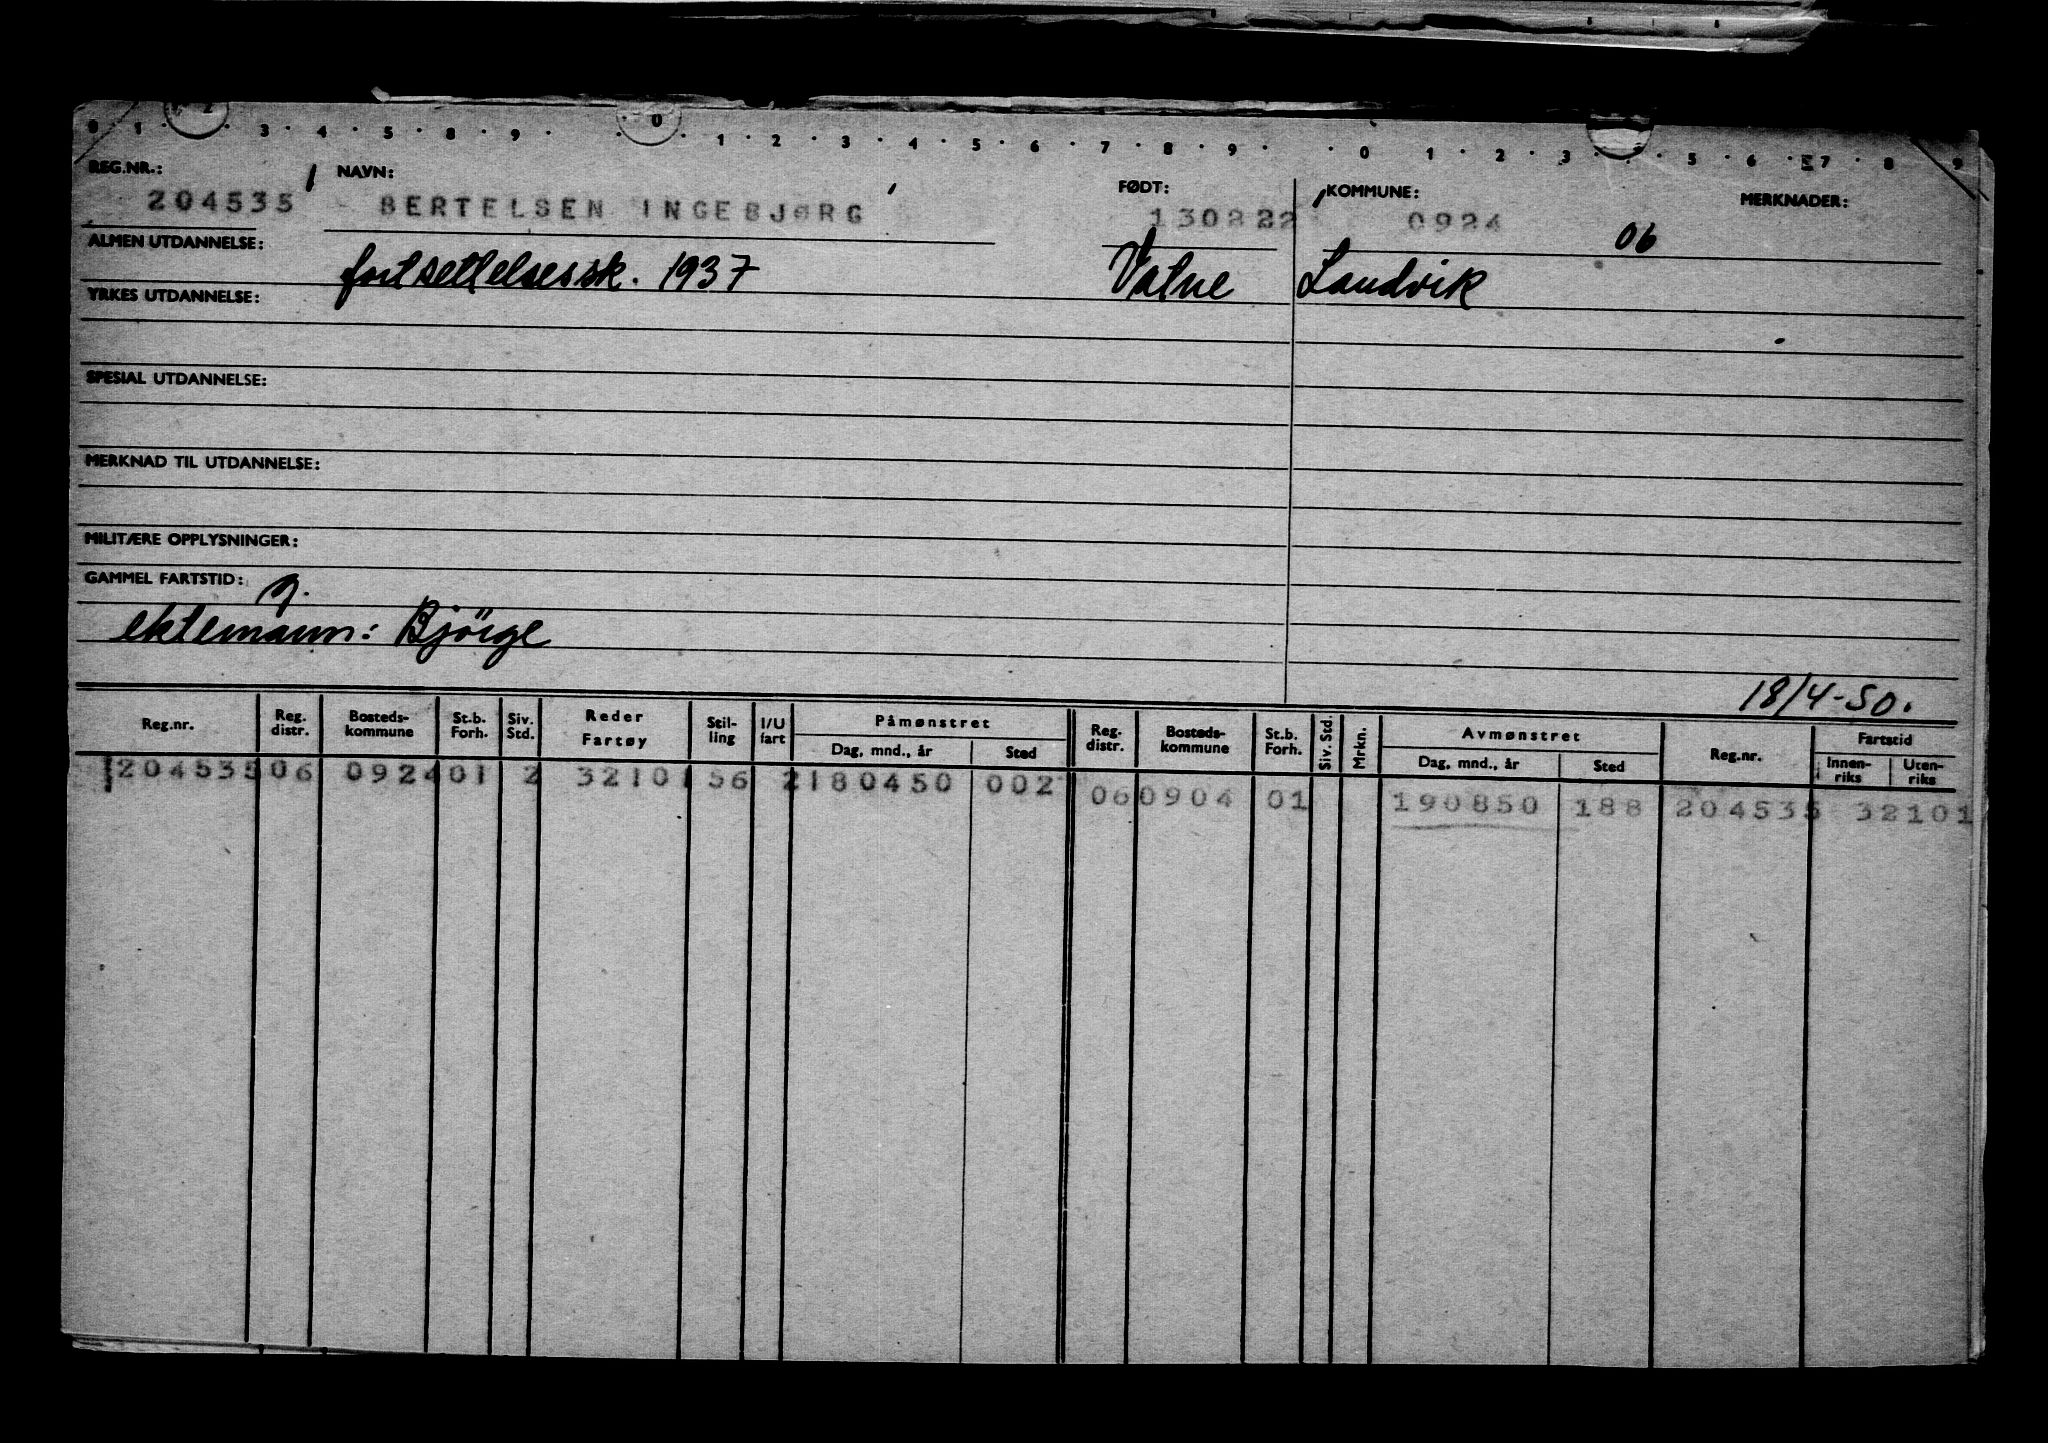 0 1 · 3 · 4 · 5 · 8 · 9 · · 0 · 1 · 2 · 3 · 4 · 5 · 6 · 7 · 8 · 9 · · 0 · 1 · 2 · 3 · · 5 · 6 · 7 · 8 · 9
REG.NR.: NAVN: FØDT: KOMMUNE: MERKNADER:
204535 BERTELSEN INGEBJØRG 130222 0924 06
ALMEN UTDANNELSE: fortsettelsessk. 1937 Vatne Landvik
YRKES UTDANNELSE:
SPESIAL UTDANNELSE:
MERKNAD TIL UTDANNELSE:
MILITÆRE OPPLYSNINGER:
GAMMEL FARTSTID:
g.
ektemann: Bjørge
18/4-50.
Reg.nr. Reg. distr. Bosteds-kommune St.b. Forh. Siv. Std. Reder Fartøy Stil-ling I/U fart Påmønstret Dag, mnd., år Sted Reg. distr. Bosteds-kommune St.b. Forh. Siv. Std. Mrkn. Avmønstret Dag, mnd., år Sted Reg.nr. Fartstid Innen-riks Uten-riks
204535 06 0924 01 2 32101 56 2 180450 002 06 0904 01 190850 188 204535 32101